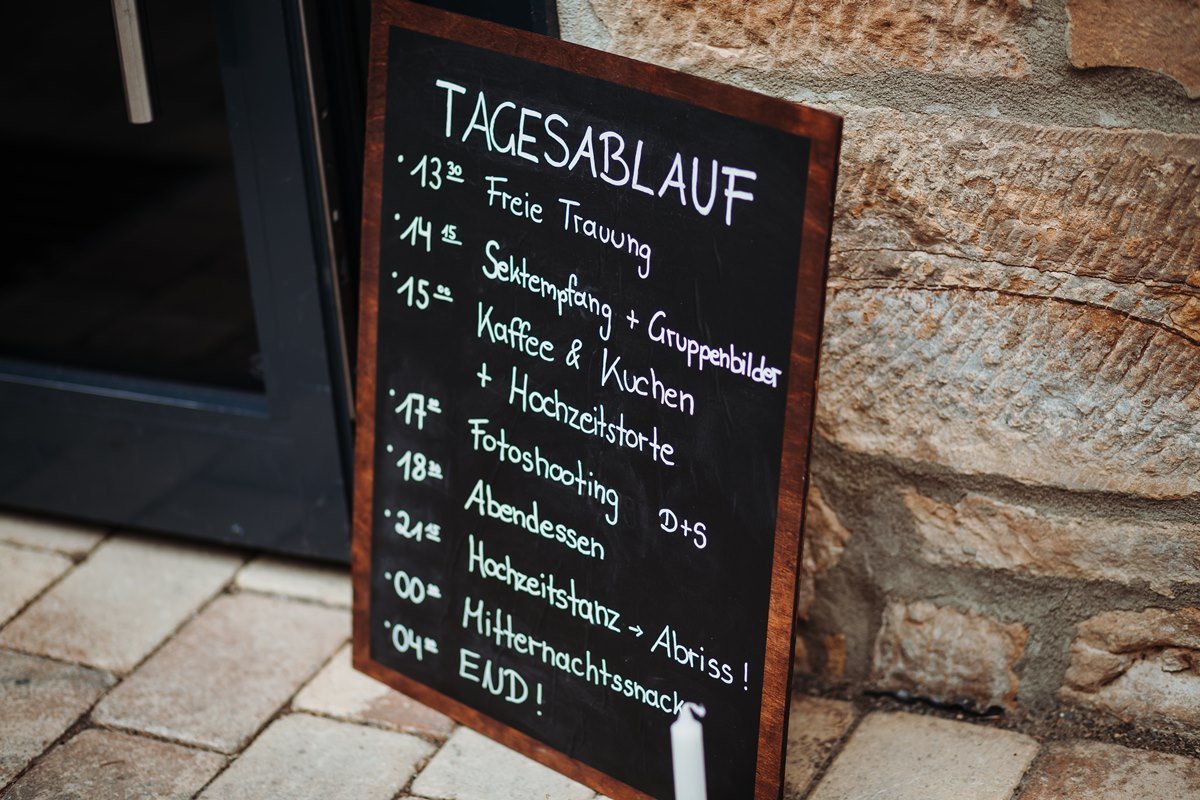 TAGESABLAUF
· 13 30 Freie Trauung
· 14 15 Sektempfang + Gruppenbilder
· 15 00 Kaffee & Kuchen
+ Hochzeitstorte
· 17 00 Fotoshooting D+S
· 18 30 Abendessen
· 21 15 Hochzeitstanz → Abriss!
· 00 00 Mitternachtssnack
· 04 00 END!